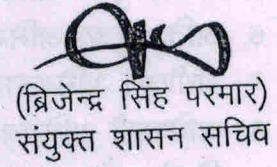 (ब्रिजेन्द्र सिंह परमार)
संयुक्त शासन सचिव